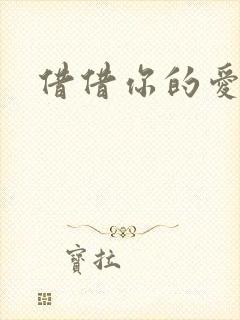 借借你的愛
寶拉